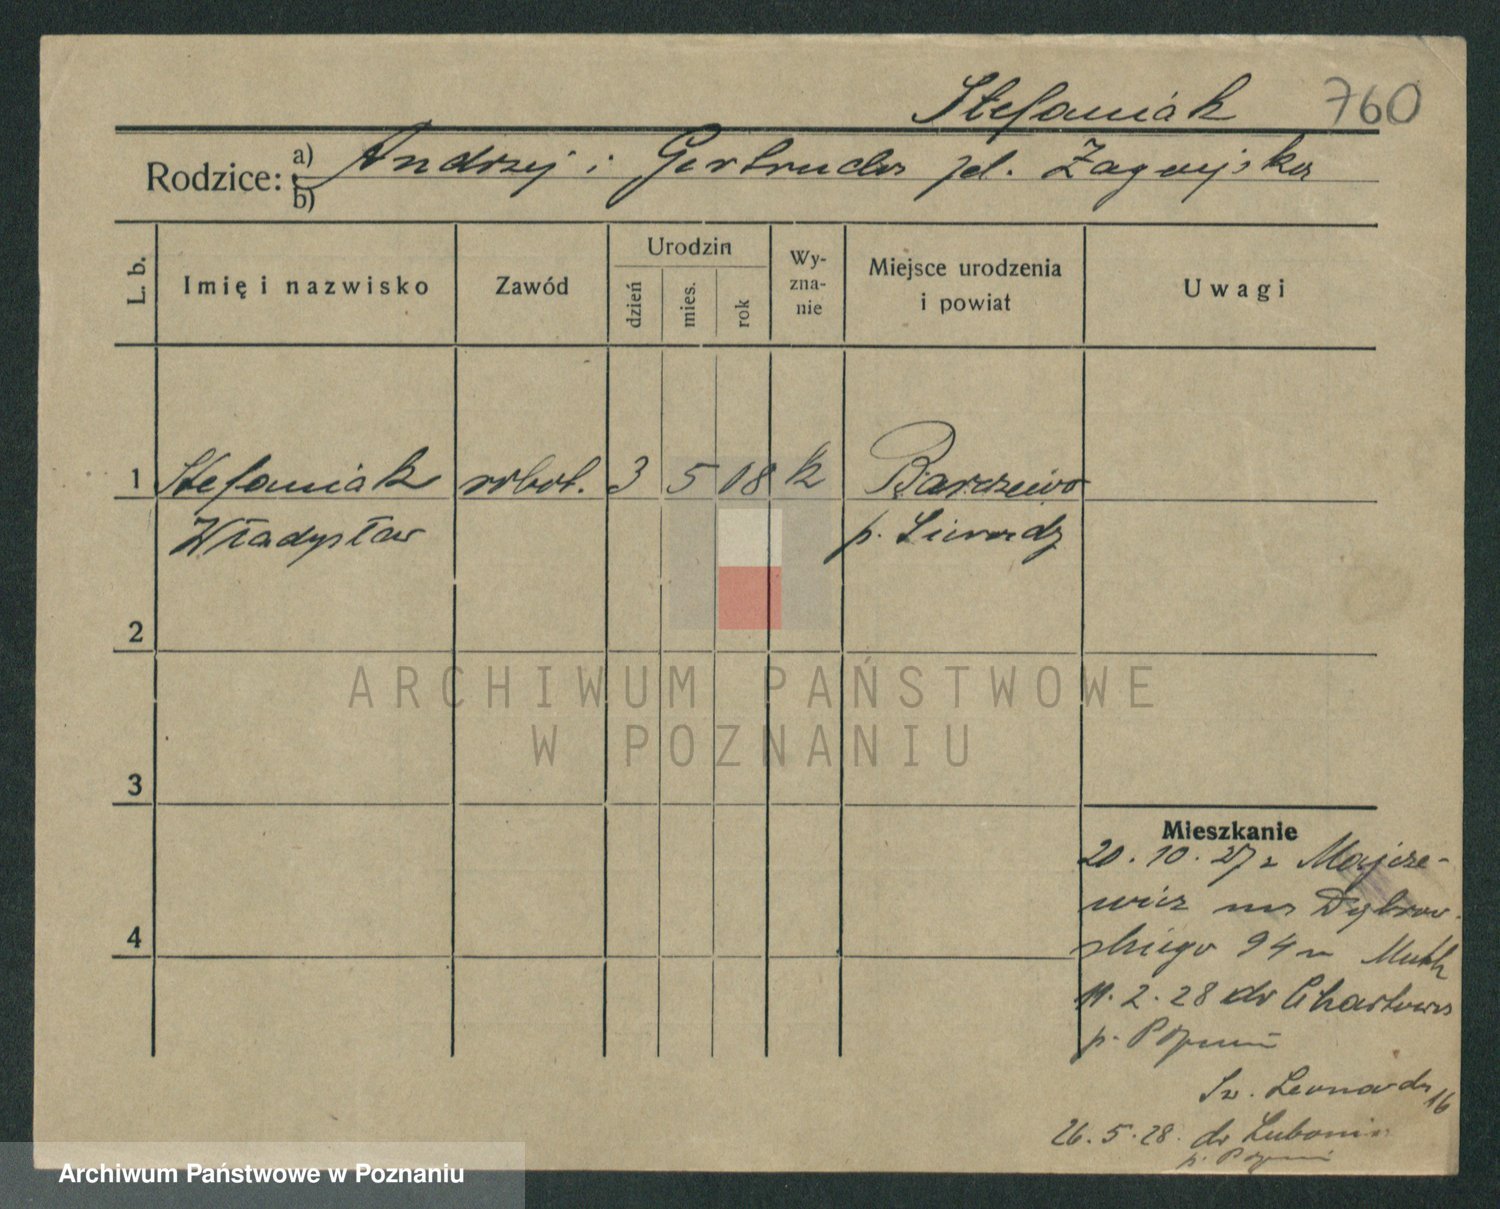 Stefaniak 760
Rodzice: a) Andrzej i Gertruda pd. Zagajska
b)
L. b. Imię i nazwisko Zawód Urodzin dzień mies. rok Wy-zna-nie Miejsce urodzenia i powiat Uwagi
1 Stefaniak robot. 3 5 08 k Barczewo
Władysław p. Sieradz
2
ARCHIWUM PAŃSTWOWE
W POZNANIU
3
Mieszkanie
20.10.27 z Majcze-
wicz na Dąbrow-
4
skiego 94 u
11.2.28 do Chartowa
p. Poznań
Św. Leonarda 16
26.5.28. do Lubonia
p. Poznań
Archiwum Państwowe w Poznaniu